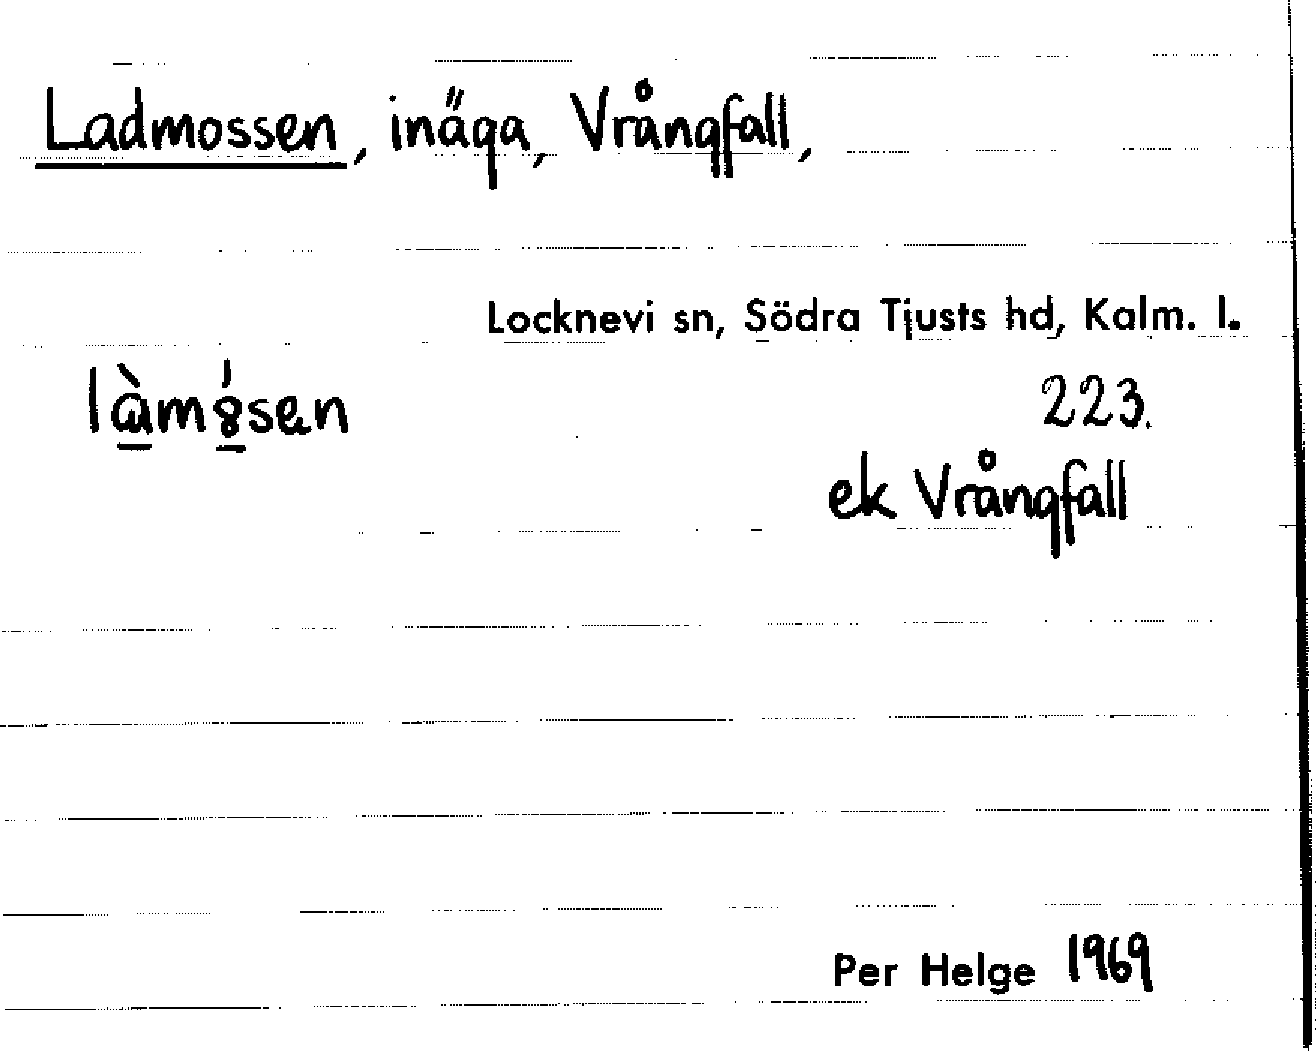 Ladmossen, inäga, Vrångfall,
Locknevi sn, Södra Tjusts hd, Kalm. l.
223.
ek Vrångfall
Per Helge 1969